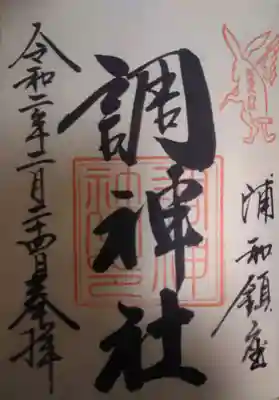 浦和鎮座
調神社
令和二年二月二十四日奉拝